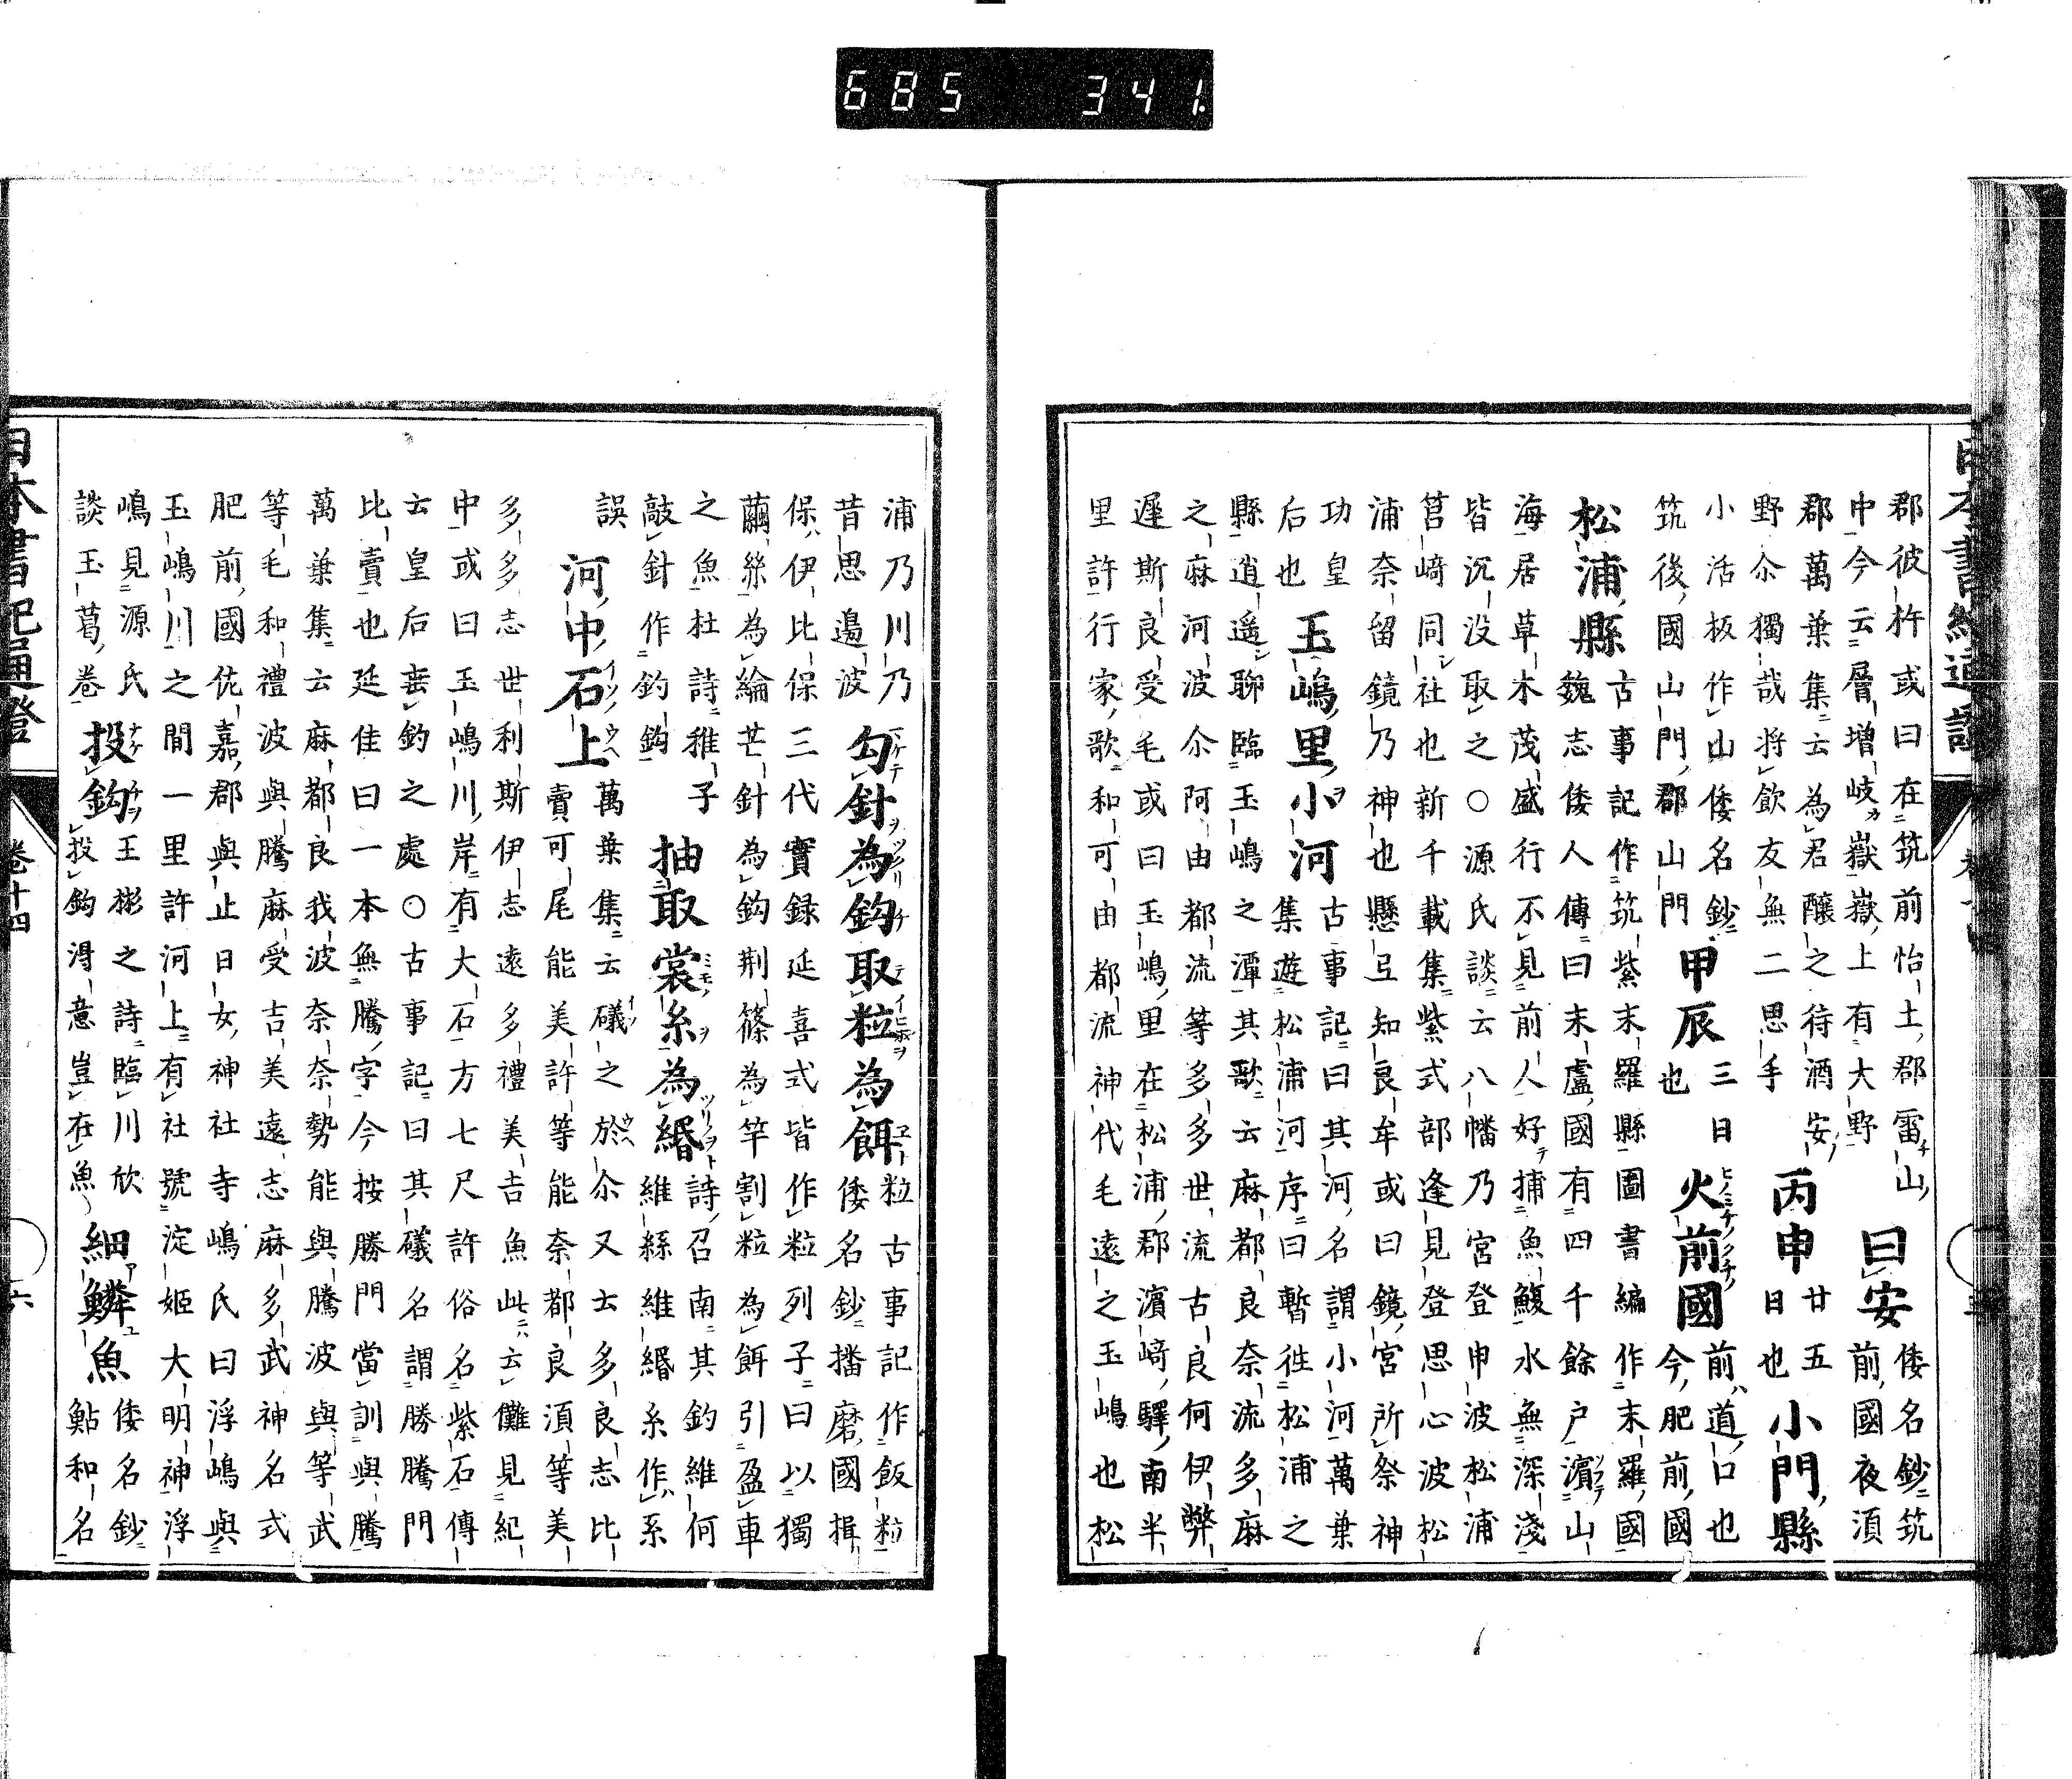 685 341.
郡彼杵或曰在筑前怡土郡雷山 曰安 倭名鈔筑
中今云層増岐嶽嶽上有大野 前國夜須
郡萬葉集云為君醸之待酒安 丙申 廿五 小門縣
野尒獨哉将飲友無二思手 日也
小活板作山倭名鈔 甲辰 三日 火前國 前道口也
筑後國山門郡山門 也 今肥前國
松浦縣 古事記作筑紫末羅縣圖書編作末羅國
魏志倭人傳曰末盧國有四千餘戸濵山
海居草木茂盛行不見前人好捕魚鰒水無深淺
皆沉没取之○源氏談云八幡乃宮登申波松浦
筥﨑同社也新千載集紫式部逢見登思心波松
浦奈留鏡乃神也懸弖知良牟或曰鏡宮所祭神
功皇 玉嶋里小河 古事記曰其河名謂小河萬葉
后也 集遊松浦河序曰暫徃松浦之
縣逍遥聊臨玉嶋之潭其歌云麻都良奈流多麻
之麻河波尒阿由都流等多多世流古良何伊弊
遲斯良受毛或曰玉嶋里在松浦郡濵﨑驛南半
里許行家歌和可由都流神代毛遠之玉嶋也松
日本書紀通證 卷十四
浦乃川乃 勾針為鈎取粒為餌 粒古事記作飯粒
昔思邉波 倭名鈔播磨國揖
保伊比保三代實録延喜式皆作粒列子曰以獨
繭絲為綸芒針為鈎荆篠為竿割粒為餌引盈車
之魚杜詩稚子 抽取裳糸為緡 詩召南其釣維何
敲針作釣鈎 維絲維緡糸作系
誤 河中石上 萬葉集云礒之於尒又云多良志比
賣可尾能美許等能奈都良湏等美
多多志世利斯伊志遠多禮美吉魚此云儺見紀
中或曰玉嶋川岸有大石方七尺許俗名紫石傳
云皇后埀釣之處○古事記曰其礒名謂勝騰門
比賣也延佳曰一本無騰字今按勝門當訓與騰
萬葉集云麻都良我波奈奈勢能與騰波與等武
等毛和禮波與騰麻受吉美遠志麻多武神名式
肥前國佐嘉郡與止日女神社寺嶋氏曰浮嶋與
玉嶋川之間一里許河上有社號淀姬大明神浮
嶋見源氏 投鈎 王彬之詩臨川欣 細鱗魚 倭名鈔
談玉葛卷 投鈎得意豈在魚 鮎和名
日本書紀通證 卷十四 六